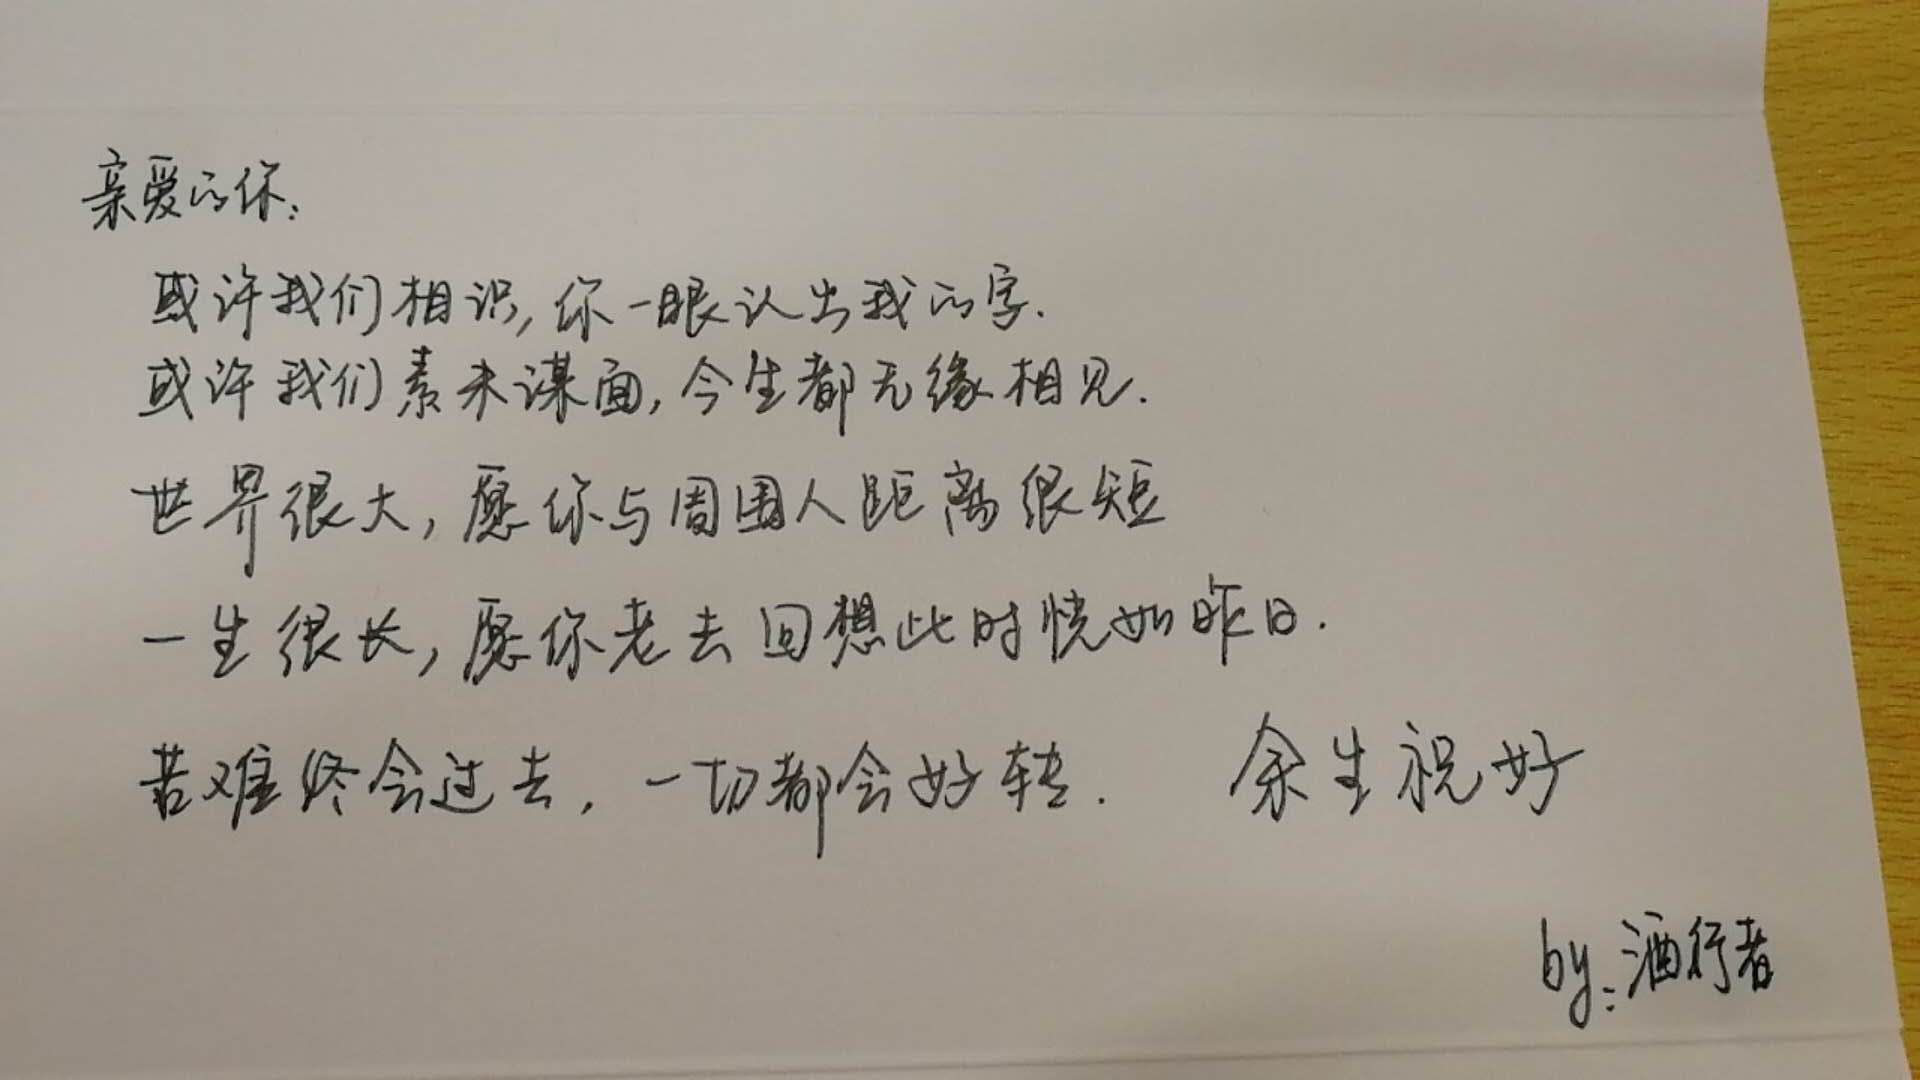 亲爱的你：
或许我们相识，你一眼认出我的字.
或许我们素未谋面，今生都无缘相见.
世界很大，愿你与周围人距离很短
一生很长，愿你老去回想此时恍如昨日.
苦难终会过去，一切都会好转. 余生祝好
by:酒行者